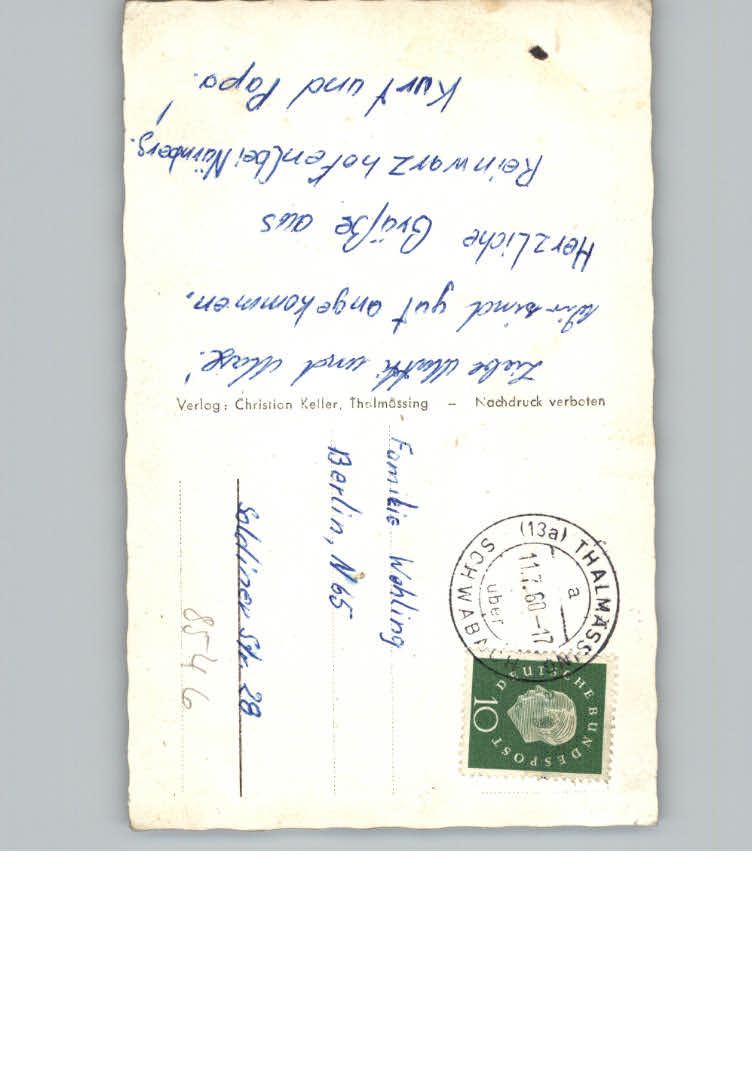 Liebe Mutti und
Wir sind gut angekommen.
Herzliche Grüße aus
Reinwarzhofen (bei Nürnberg.)
Kurt und Papa.
Verlag: Christian Keller, Thalmässing – Nachdruck verboten
Familie Wehling
Berlin, N 65
Soldiner Str. 28
8546
(13a) THALMÄSSING
über
SCHWABACH
11.7.60–17
a
DEUTSCHE BUNDESPOST
10